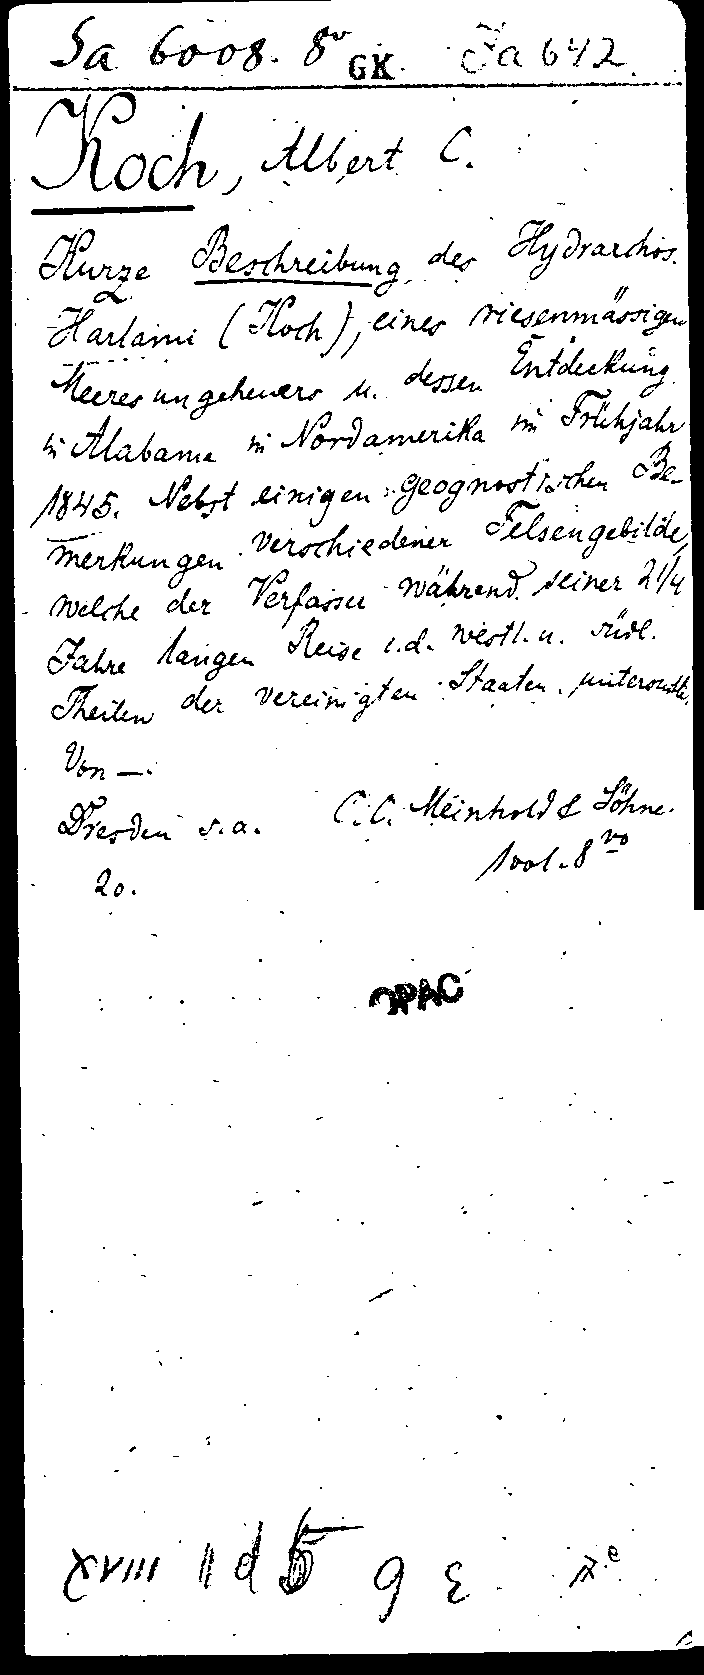 Sa 6008. 8° GK. Ja 642
Koch, Albert C.
Kurze Beschreibung des Hydrarchos
Harlami (Koch), eines riesenmässigen
Meeresungeheuers u. dessen Entdeckung
in Alabama in Nordamerika im Frühjahr
1845. Nebst einigen geognostischen Be-
merkungen verschiedener Felsengebilde,
welche der Verfasser während seiner 2 1/4
Jahre langen Reise i. d. westl. u. südl.
Theilen der vereinigten Staaten untersuchte.
Von —.
Dresden s. a. C. C. Meinhold & Söhne.
20. 1 vol. 8vo
OPAC
XVIII II d 5 9 ε